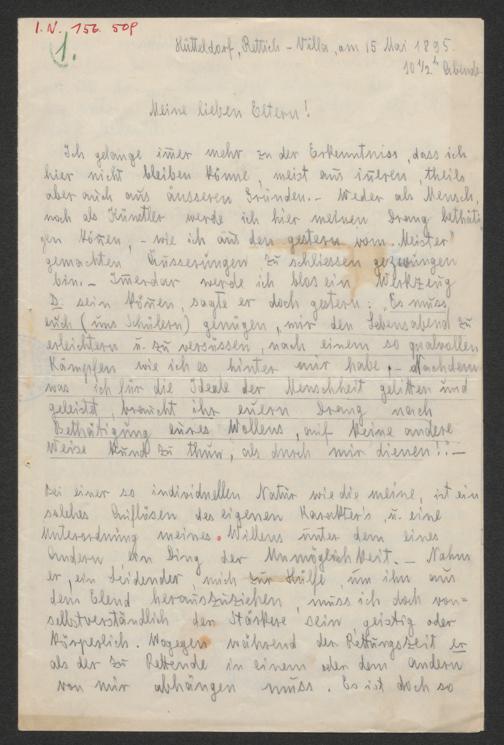 I.N. 156.509
1.
Hütteldorf, Rettich-Villa, am 15 Mai 1895.
10 1/2 h Abends
Meine lieben Eltern!
Ich gelange im̅er mehr zu der Erkenntniss, dass ich
hier nicht bleiben kön̅e, meist aus in̅eren, theils
aber auch aus äusseren Gründen. – Weder als Mensch,
noch als Künstler werde ich hier meinen Drang bethäti
gen kön̅en, – wie ich aus den gestern vom „Meister"
gemachten Äusserungen zu schliessen gezwungen
bin. – Im̅erdar werde ich blos ein Werkzeug
D. sein kön̅en, sagte er doch gestern: „Es muss
euch (uns Schülern) genügen, mir den Lebensabend zu
erleichtern u. zu versüssen, nach einem so qualvollen
Kämpfen wie ich es hinter mir habe. – Nachdem
was ich für die Ideale der Menschheit gelitten und
geleistet, braucht ihr euern Drang nach
Bethätigung eures Wollens, auf keine andere
Weise kund zu thun, als durch mir dienen!" –
Bei einer so individuellen Natur wie die meine, ist ein
solches Auflösen des eigenen Karakter's, u. eine
Unterordnung meines Willens unter dem eines
Andern ein Ding der Unmöglichkeit. – Nahm
er, ein Leidender, mich zur Hülfe, um ihn aus
dem Elend herauszuziehen, muss ich doch von-
selbstverständlich der Stärkere sein, geistig oder
körperlich. Wogegen während der Rettungszeit er
als der zu Rettende in einem oder dem andern
von mir abhängen muss. Es ist doch so